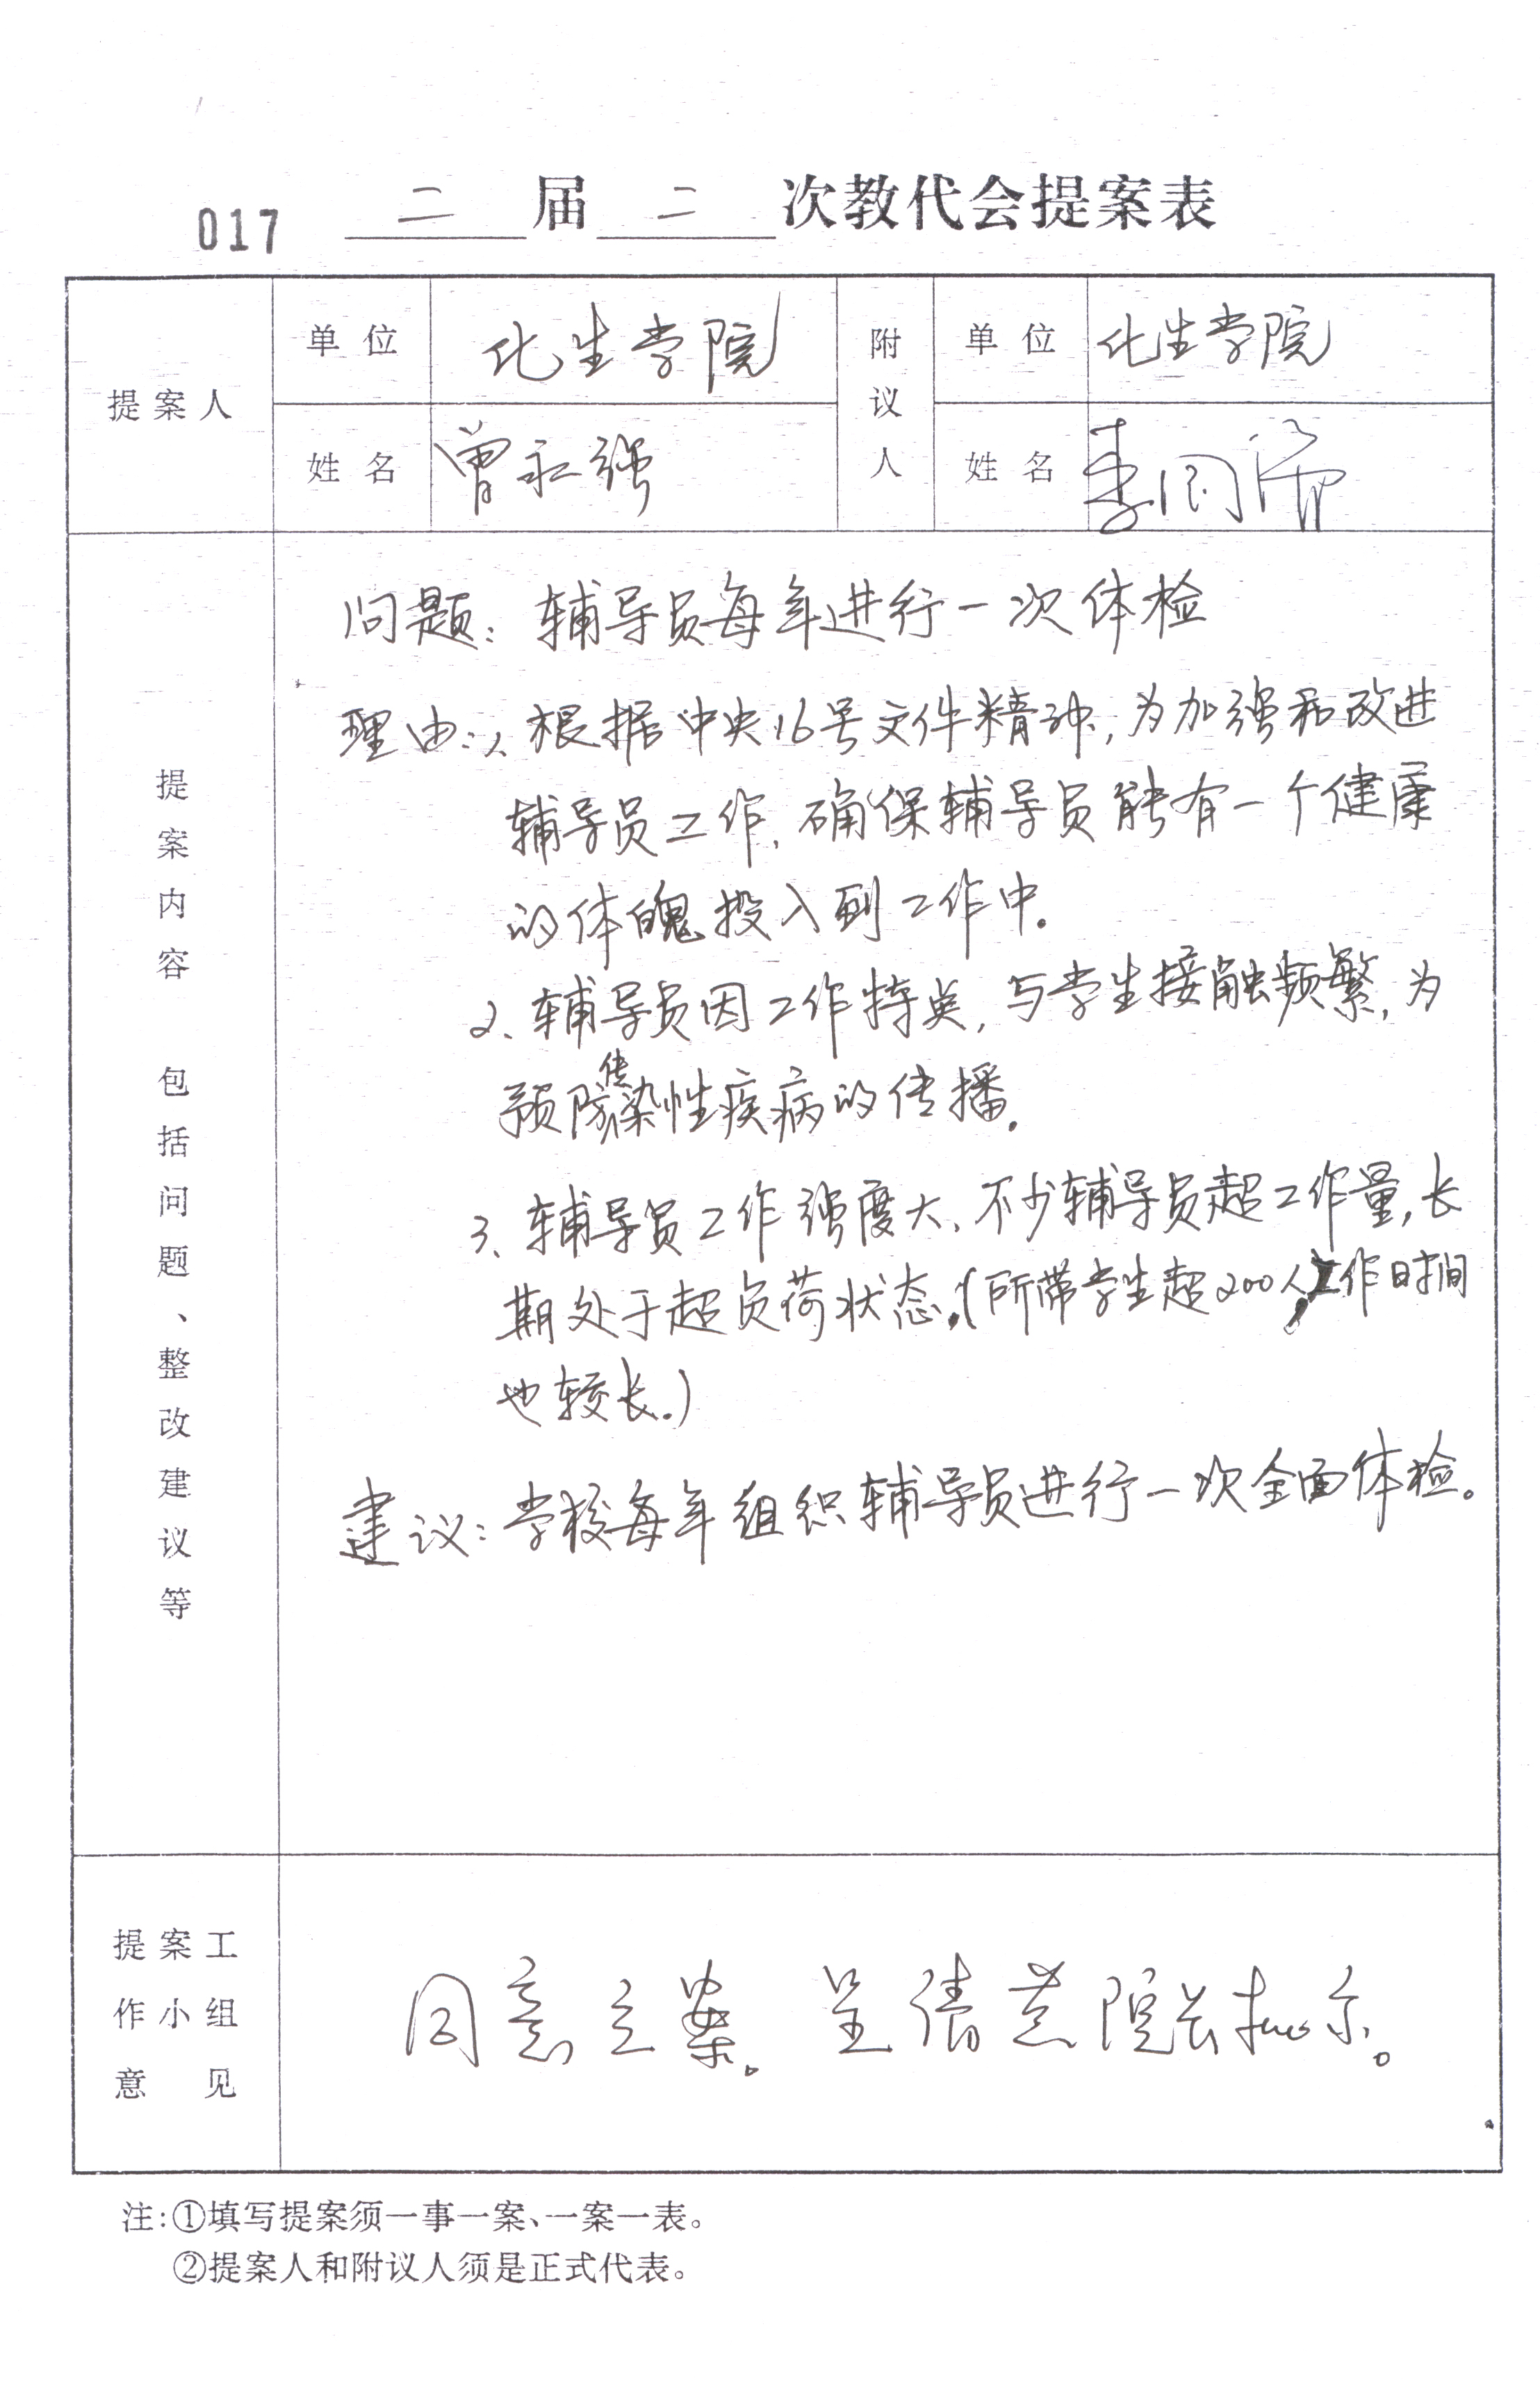 017 二届二次教代会提案表
提案人 单位 化生学院 附议人 单位 化生学院
姓名 曾永强 姓名 李同
提案内容 包括问题、整改建议等
问题：辅导员每年进行一次体检
理由：1、根据中央16号文件精神，为加强和改进
辅导员工作，确保辅导员能有一个健康
的体魄投入到工作中。
2、辅导员因工作特点，与学生接触频繁，为
预防传染性疾病的传播。
3、辅导员工作强度大，不少辅导员超工作量，长
期处于超负荷状态。（所带学生超200人，工作时间
也较长。）
建议：学校每年组织辅导员进行一次全面体检。
提案工
作小组
意见
同意立案。呈请院长批示。
注：①填写提案须一事一案、一案一表。
②提案人和附议人须是正式代表。